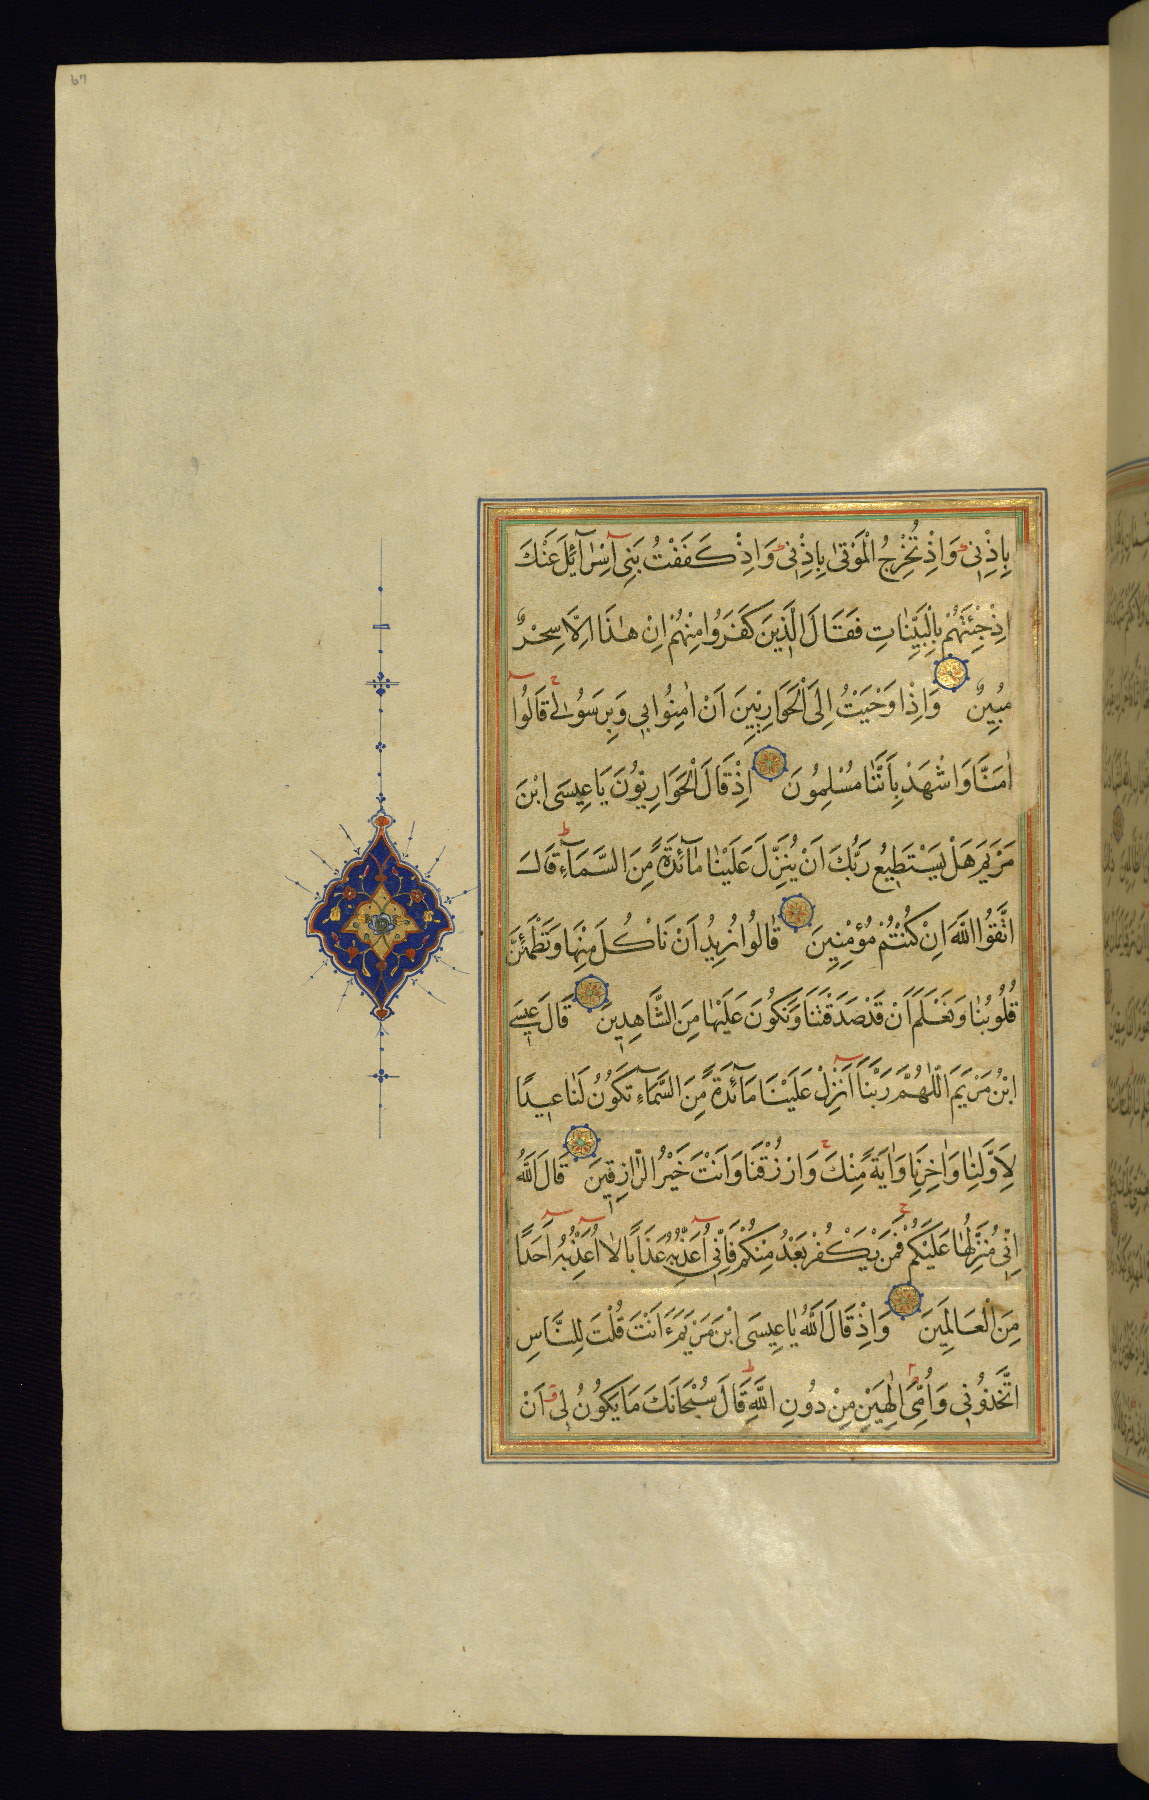 67
بِاِذْنِي وَاِذْ تُخْرِجُ الْمَوْتٰى بِاِذْنِي وَاِذْ كَفَفْتُ بَنِي اِسْرَآئِلَ عَنْكَ
اِذْ جِئْتَهُمْ بِالْبَيِّنَاتِ فَقَالَ الَّذِينَ كَفَرُوا مِنْهُمْ اِنْ هٰذَا اِلَّا سِحْرٌ
مُبِينٌ وَاِذْ اَوْحَيْتُ اِلَى الْحَوَارِيّينَ اَنْ اٰمِنُوا بِي وَبِرَسُولِي قَالُوا
اٰمَنَّا وَاشْهَدْ بِاَنَّنَا مُسْلِمُونَ اِذْ قَالَ الْحَوَارِيّوُنَ يَا عِيسَى ابْنَ
مَرْيَمَ هَلْ يَسْتَطِيعُ رَبُّكَ اَنْ يُنَزِّلَ عَلَيْنَا مَآئِدَةً مِنَ السَّمَآءِ قَالَ
اتَّقُوا اللّٰهَ اِنْ كُنْتُمْ مُؤْمِنِينَ قَالُوا نُرِيدُ اَنْ نَاْكُلَ مِنْهَا وَتَطْمَئِنَّ
قُلُوبُنَا وَنَعْلَمَ اَنْ قَدْ صَدَقْتَنَا وَنَكُونَ عَلَيْهَا مِنَ الشَّاهِدِينَ قَالَ عِيسَى
ابْنُ مَرْيَمَ اللّٰهُمَّ رَبَّنَا اَنْزِلْ عَلَيْنَا مَآئِدَةً مِنَ السَّمَآءِ تَكُونُ لَنَا عِيدًا
لِاَوَّلِنَا وَاٰخِرِنَا وَاٰيَةً مِنْكَ وَارْزُقْنَا وَاَنْتَ خَيْرُ الرَّازِقِينَ قَالَ اللّٰهُ
اِنِّي مُنَزِّلُهَا عَلَيْكُمْ فَمَنْ يَكْفُرْ بَعْدُ مِنْكُمْ فَاِنِّي اُعَذِّبُهُ عَذَابًا لَا اُعَذِّبُهُ اَحَدًا
مِنَ الْعَالَمِينَ وَاِذْ قَالَ اللّٰهُ يَا عِيسَى ابْنَ مَرْيَمَ ءَاَنْتَ قُلْتَ لِلنَّاسِ
اتَّخِذُونِي وَاُمِّيَ اِلٰهَيْنِ مِنْ دُونِ اللّٰهِ قَالَ سُبْحَانَكَ مَا يَكُونُ لِي اَنْ